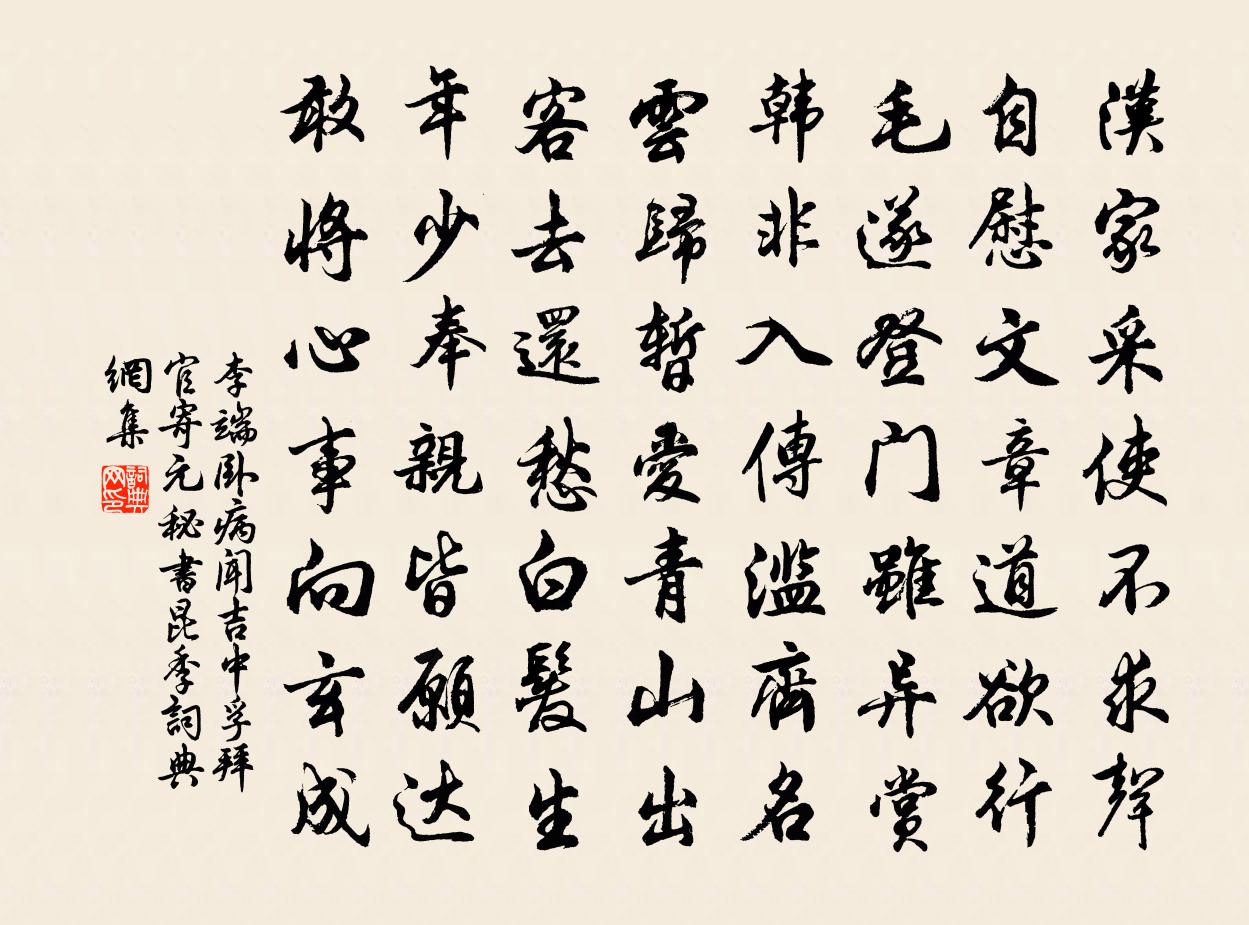 漢家采使不求聲
自慰文章道欲行
毛遂登门雖异賞
韩非入傳濫齊名
雲歸暫愛青山出
客去還愁白髮生
年少奉親皆願达
敢將心事向玄成
李端卧病闻吉中孚拜
官寄元秘書昆季詞典
網集
詞典网印